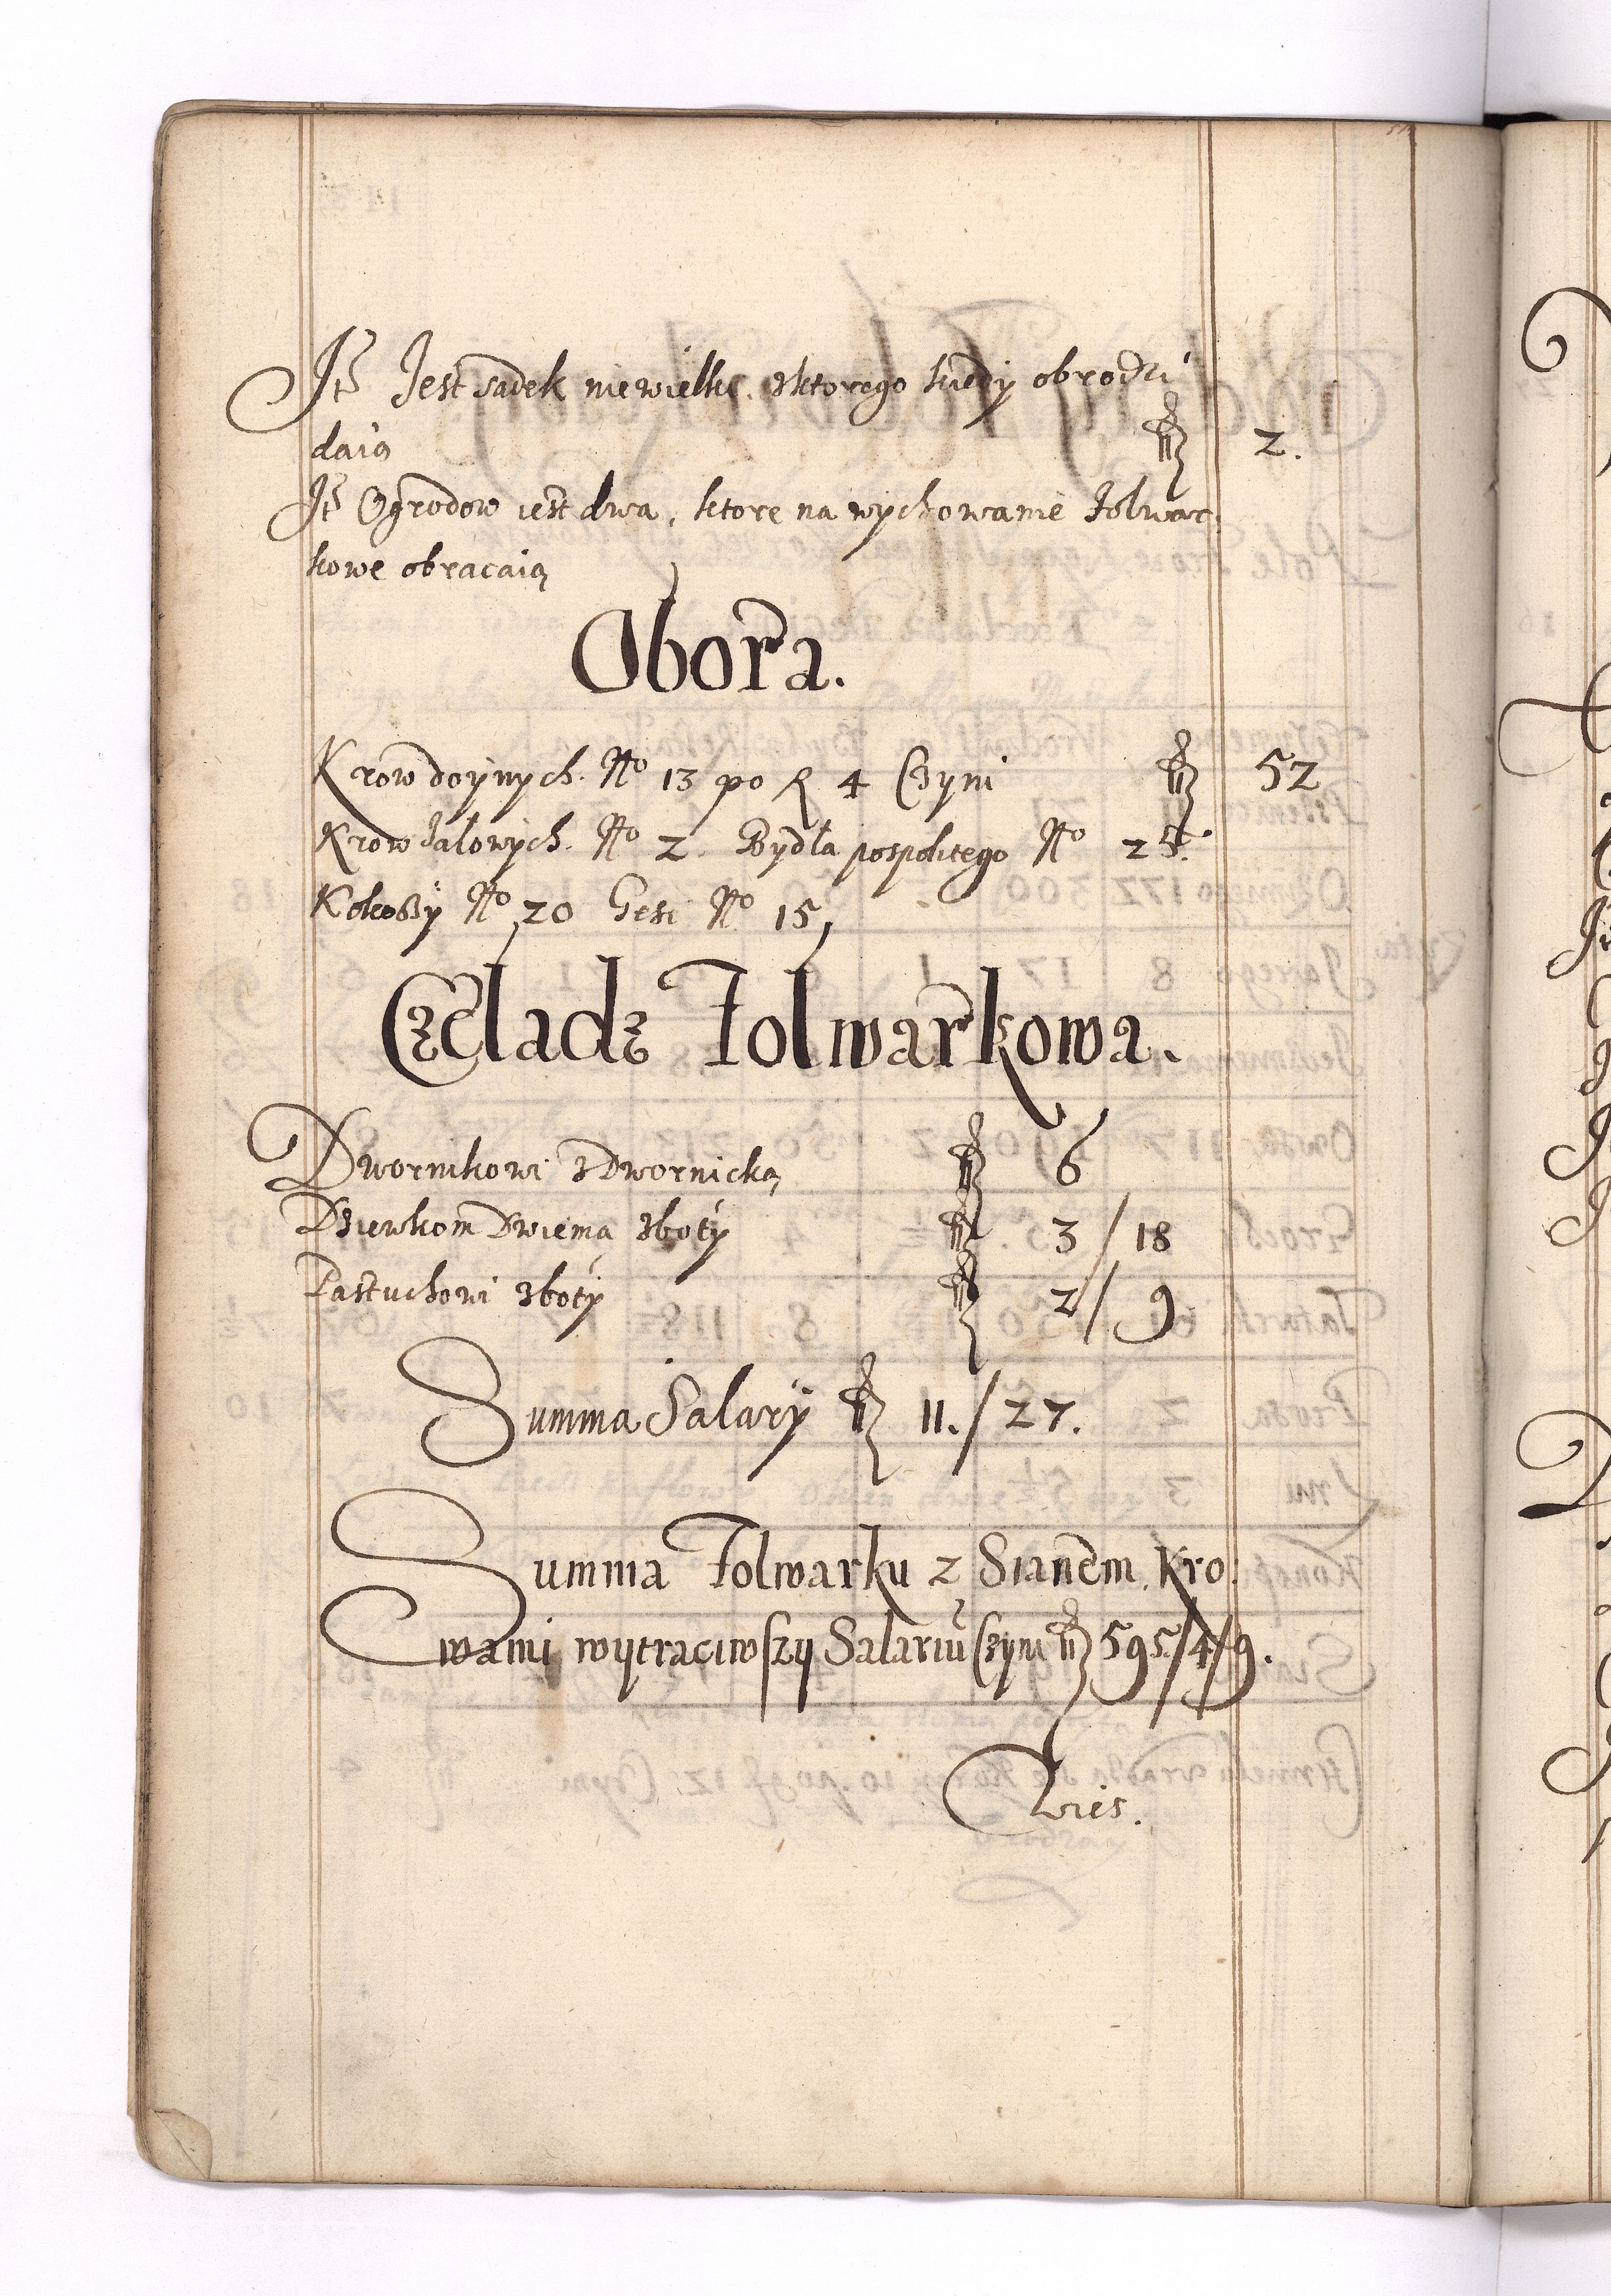 Itē Jest sadek niewielki, zktorego kiedy obrodzi
daią fl 2.
Itē Ogrodow iest dwa, ktore na wychowanie folwar:
kowe obracaią
Obora.
Krow doynych. No 13 po fl 4 Czyni fl 52
Krow Jalowych. No 2. Bydła pospolitego No 25.
Kokoszy No 20 Gesi No 15,
Czeladz Folwarkowa.
Dwornikowi z Dwornicką fl 6
Dziewkom Dwiema zboty fl 3 / 18
Pastuchowi zboty fl 2 / 9
Summa Salary fl 11. / 27.
Summa Folwarku z Sianem, Kro:
wami wytraciwszy Salariū Czyni fl 595/4/9.
Wies.